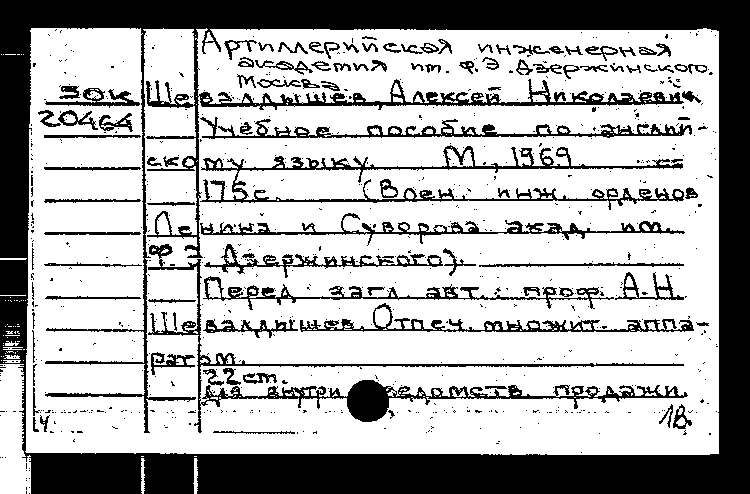 Артиллерийская инженерная
академия им. Ф.Э. Дзержинского.
Москва
30К Шевалдышев, Алексей Николаевич
20464 Учебное пособие по англий-
скому языку. М., 1969.
175с. (Воен. инж. орденов
Ленина и Суворова акад. им.
Ф.Э. Дзержинского).
Перед загл. авт.: проф. А.Н.
Шевалдышев. Отпеч. множит. аппа-
ратом.
22 ст.
Для внутриведомств. продажи.
Ч. 1В.